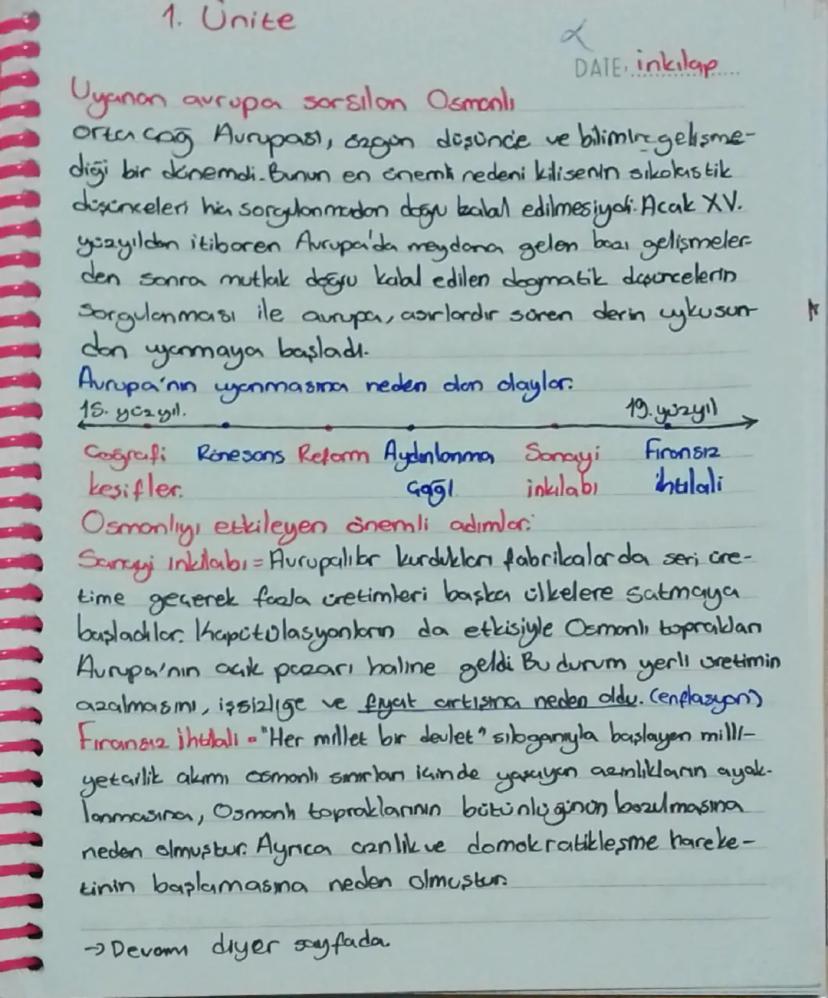 1. Ünite
DATE: inkılap
Uyanan avrupa sarsılan Osmanlı
orta çağ Avrupası, özgün düşünce ve bilimin gelişme-
diği bir dönemdi. Bunun en önemli nedeni kilisenin sikolastik
düşünceleri hiç sorgulanmadan doğu kabul edilmesiydi. Acak XV.
yüzyıldan itibaren Avrupa'da meydana gelen bazı gelişmeler-
den sonra mutlak doğru kabul edilen dogmatik düşüncelerin
sorgulanması ile avrupa, asırlardır süren derin uykusun-
dan uyanmaya başladı.
Avrupa'nın uyanmasına neden olan olaylar:
15. yüzyıl. 19. yüzyıl
Coğrafi Rönesans Reform Aydınlanma Sanayi Fıransız
keşifler. çağı inkılabı ihtilali
Osmanlıyı etkileyen önemli adımlar:
Sanayi inkılabı = Avrupalılar kurdukları fabrikalarda seri üre-
time geçerek fazla üretimleri başka ülkelere satmaya
başladılar. Kapitülasyonların da etkisiyle Osmanlı toprakları
Avrupa'nın açık pazarı haline geldi Bu durum yerli üretimin
azalmasını, işsizliğe ve fiyat artışına neden oldu. (enflasyon)
Fıransız ihtilali = "Her millet bir devlet" sıloganıyla başlayan milli-
yetçilik akımı osmanlı sınırları içinde yaşayan azınlıkların ayak-
lanmasına, Osmanlı topraklarının bütünlüğünün bozulmasına
neden olmuştur. Ayrıca ve domokratikleşme hareke-
tinin başlamasına neden olmuştur.
→ Devamı diyer sayfada